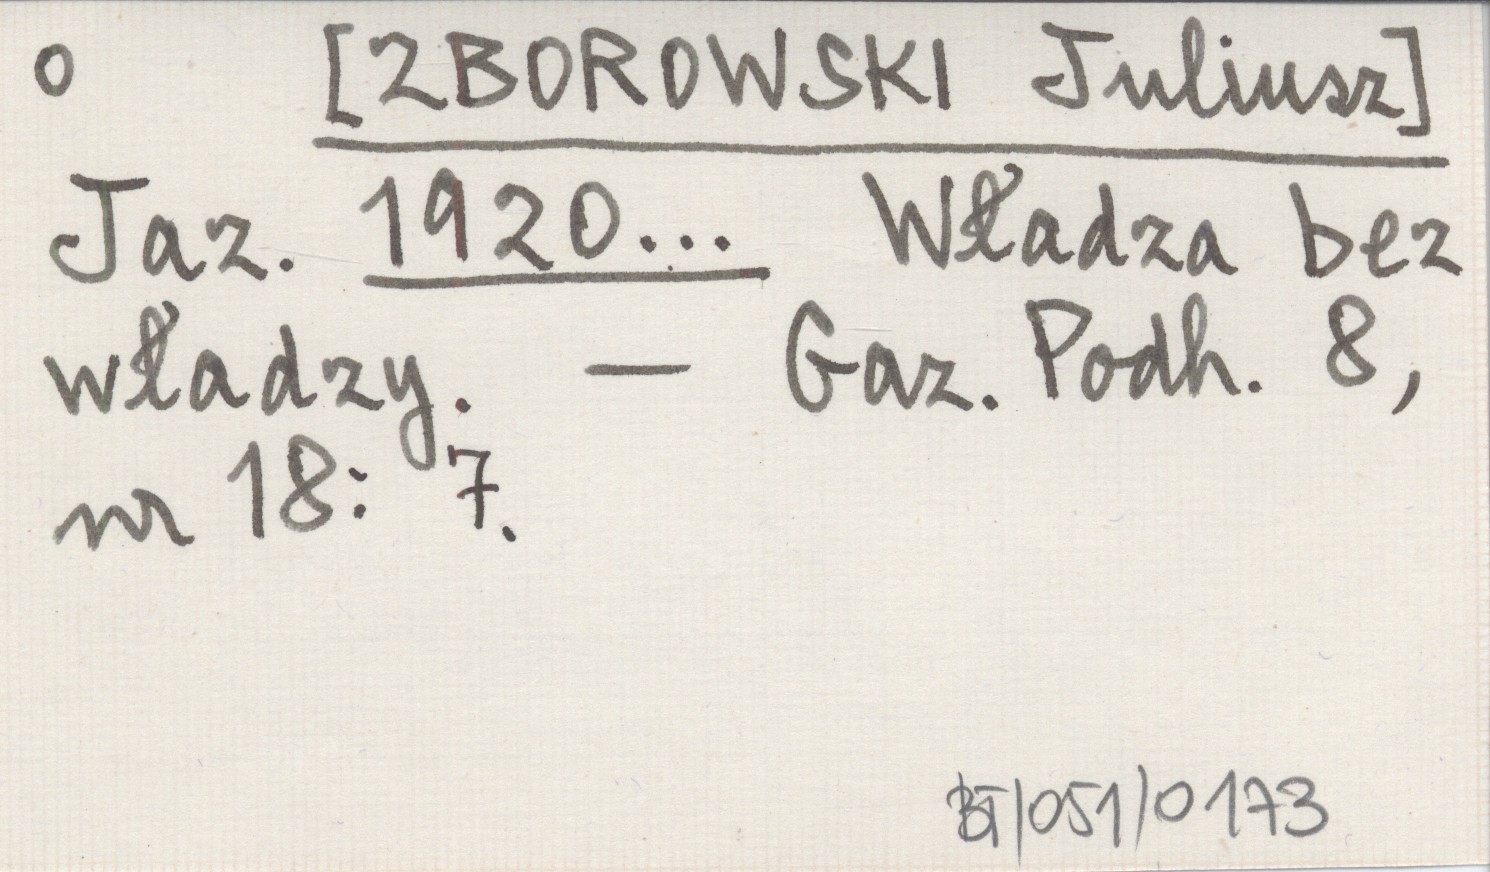 o [ZBOROWSKI Juliusz]
Jaz. 1920... Władza bez
władzy. — Gaz. Podh. 8,
nr 18: 7.
BT/051/0173